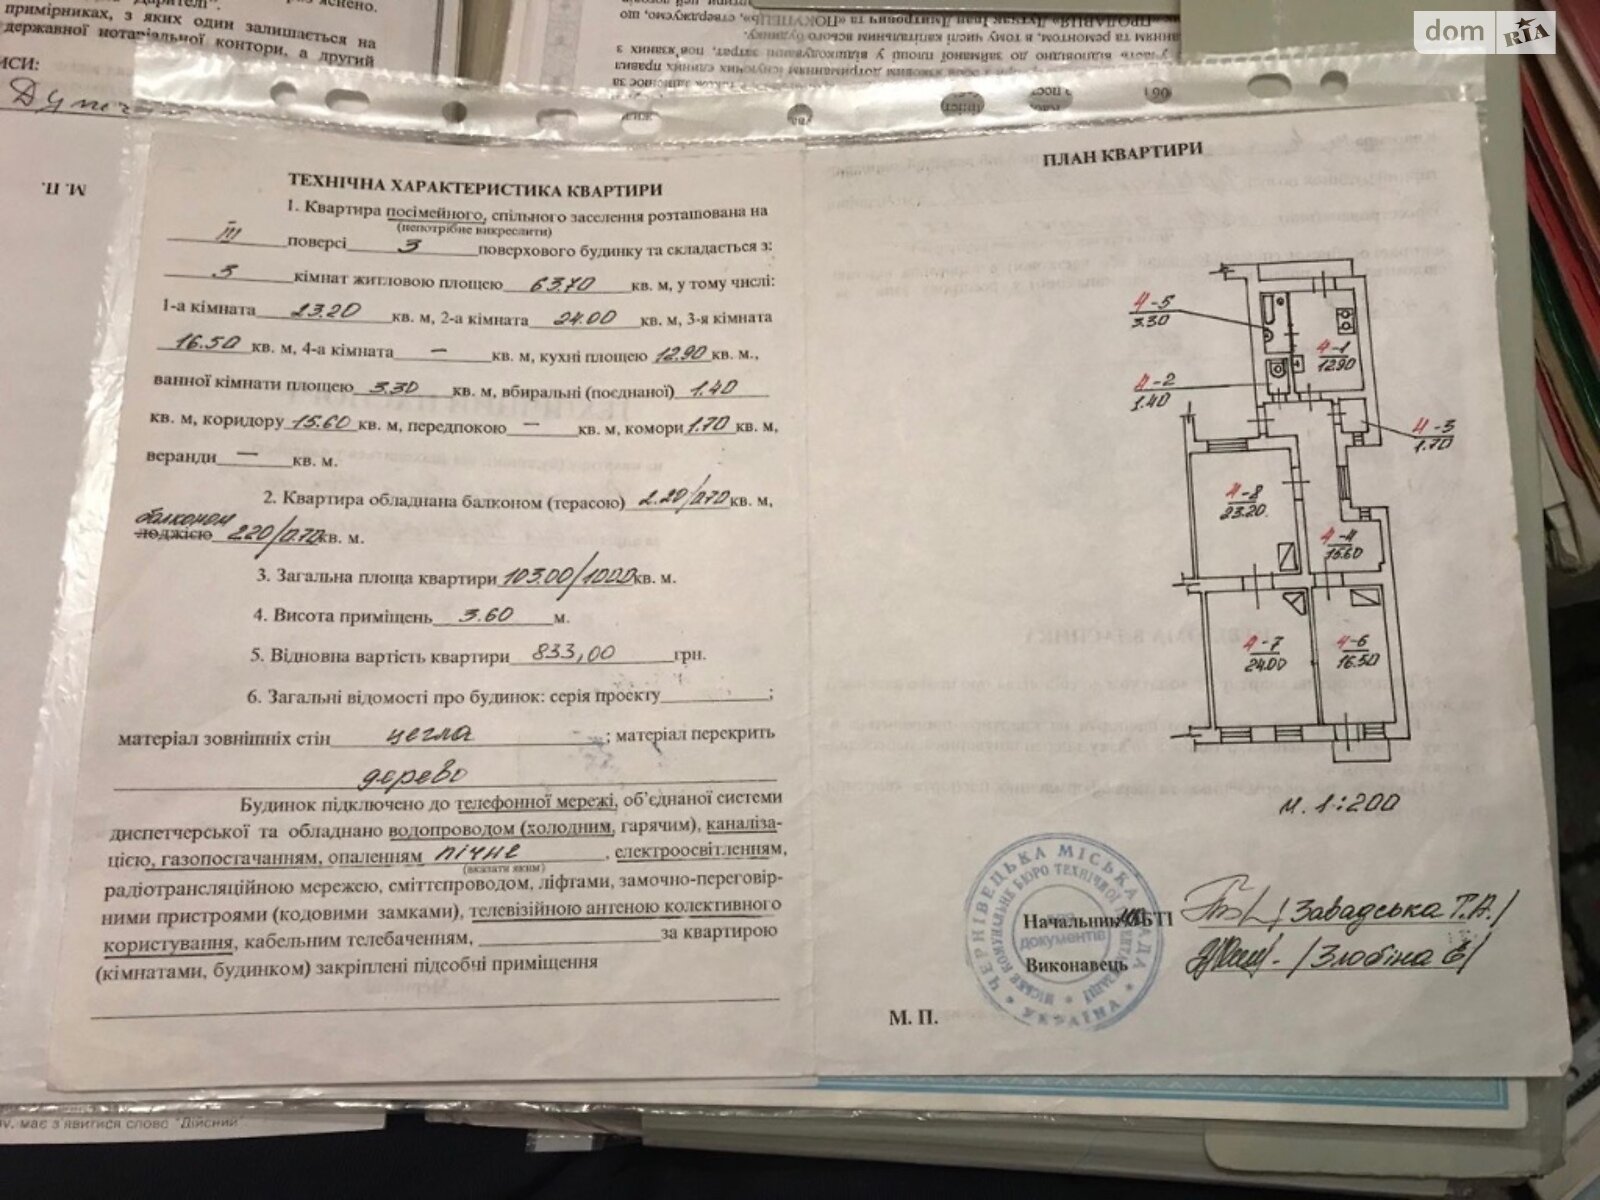 dom RIA
примірниках, з яких один залишається на
державної нотаріальної контори, а другий
М. П.
ТЕХНІЧНА ХАРАКТЕРИСТИКА КВАРТИРИ
1. Квартира посімейного, спільного заселення розташована на
(непотрібне викреслити)
III поверсі 3 поверхового будинку та складається з:
3 кімнат житловою площею 63.70 кв. м, у тому числі:
1-а кімната 23.20 кв. м, 2-а кімната 24.00 кв. м, 3-я кімната
16.50 кв. м, 4-а кімната — кв. м, кухні площею 12.90 кв. м.,
ванної кімнати площею 3.30 кв. м, вбиральні (поєднаної) 1.40
кв. м, коридору 15.60 кв. м, передпокою — кв. м, комори 1.70 кв. м,
веранди — кв. м.
2. Квартира обладнана балконом (терасою) 2.20/0.70 кв. м,
балконом
лоджією 2.20/0.70 кв. м.
3. Загальна площа квартири 103.00/100.0 кв. м.
4. Висота приміщень 3.60 м.
5. Відновна вартість квартири 833,00 грн.
6. Загальні відомості про будинок: серія проєкту ;
матеріал зовнішніх стін цегла ; матеріал перекрить
дерево
Будинок підключено до телефонної мережі, об'єднаної системи
диспетчерської та обладнано водопроводом (холодним, гарячим), каналіза-
цією, газопостачанням, опаленням пічне , електроосвітленням,
(вказати яким)
радіотрансляційною мережею, сміттєпроводом, ліфтами, замочно-переговір-
ними пристроями (кодовими замками), телевізійною антеною колективного
користування, кабельним телебаченням, за квартирою
(кімнатами, будинком) закріплені підсобні приміщення
ПЛАН КВАРТИРИ
4-5
3.30
4-1
12.90
4-2
1.40
4-3
1.70
4-8
23.20
4-4
15.60
4-7
24.00
4-6
16.50
м. 1:200
ЧЕРНІВЕЦЬКА МІСЬКА РАДА
УКРАЇНА
документів
Начальник МБТІ /Завадська Т.А./
Виконавець /Злобіна Є/
М. П.
має з'явитися слово "Дійсний"